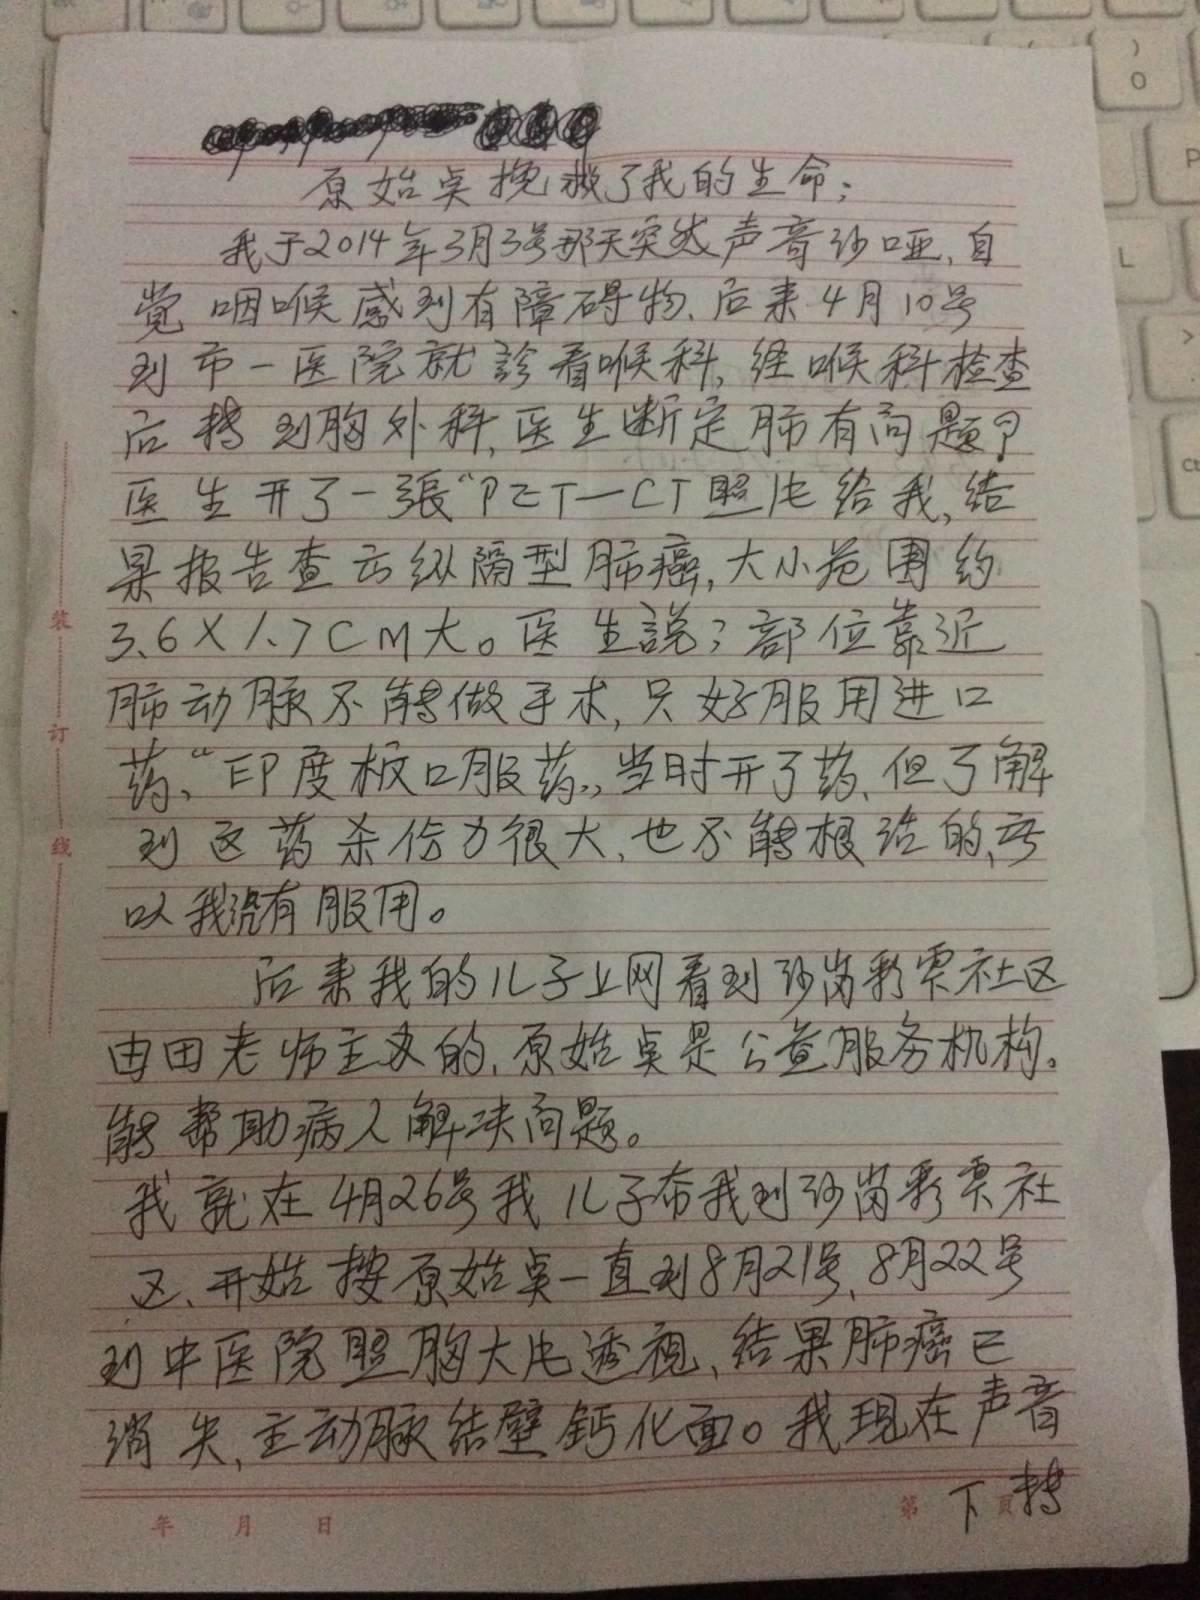 原始点挽救了我的生命；
我于2014年3月3号那天突然声音沙哑，自
觉咽喉感到有障碍物、后来4月10号
到市一医院就診看喉科，经喉科检查
后转到胸外科，医生断定肺有问题？
医生开了一張“PET—CT照片给我，结
果报告查云纵隔型肺癌，大小范围约
3.6X1.7CM大。医生説；部位靠近
肺动脉不能做手术，只好服用进口
药，“印度板口服药”，当时开了药、但了解
到这药杀伤力很大，也不能根治的，所
以我没有服用。
后来我的儿子上网看到沙岗彩票社区
由田老师主办的，原始点是公益服务机构。
能帮助病人解决问题。
我就在4月26号我儿子带我到沙岗彩票社
区、开始按原始点一直到8月21号、8月22号
到中医院照胸大片透视、结果肺癌已
消失，主动脉结壁鈣化面。我现在声音
下转
装
订
线
年 月 日
第 页